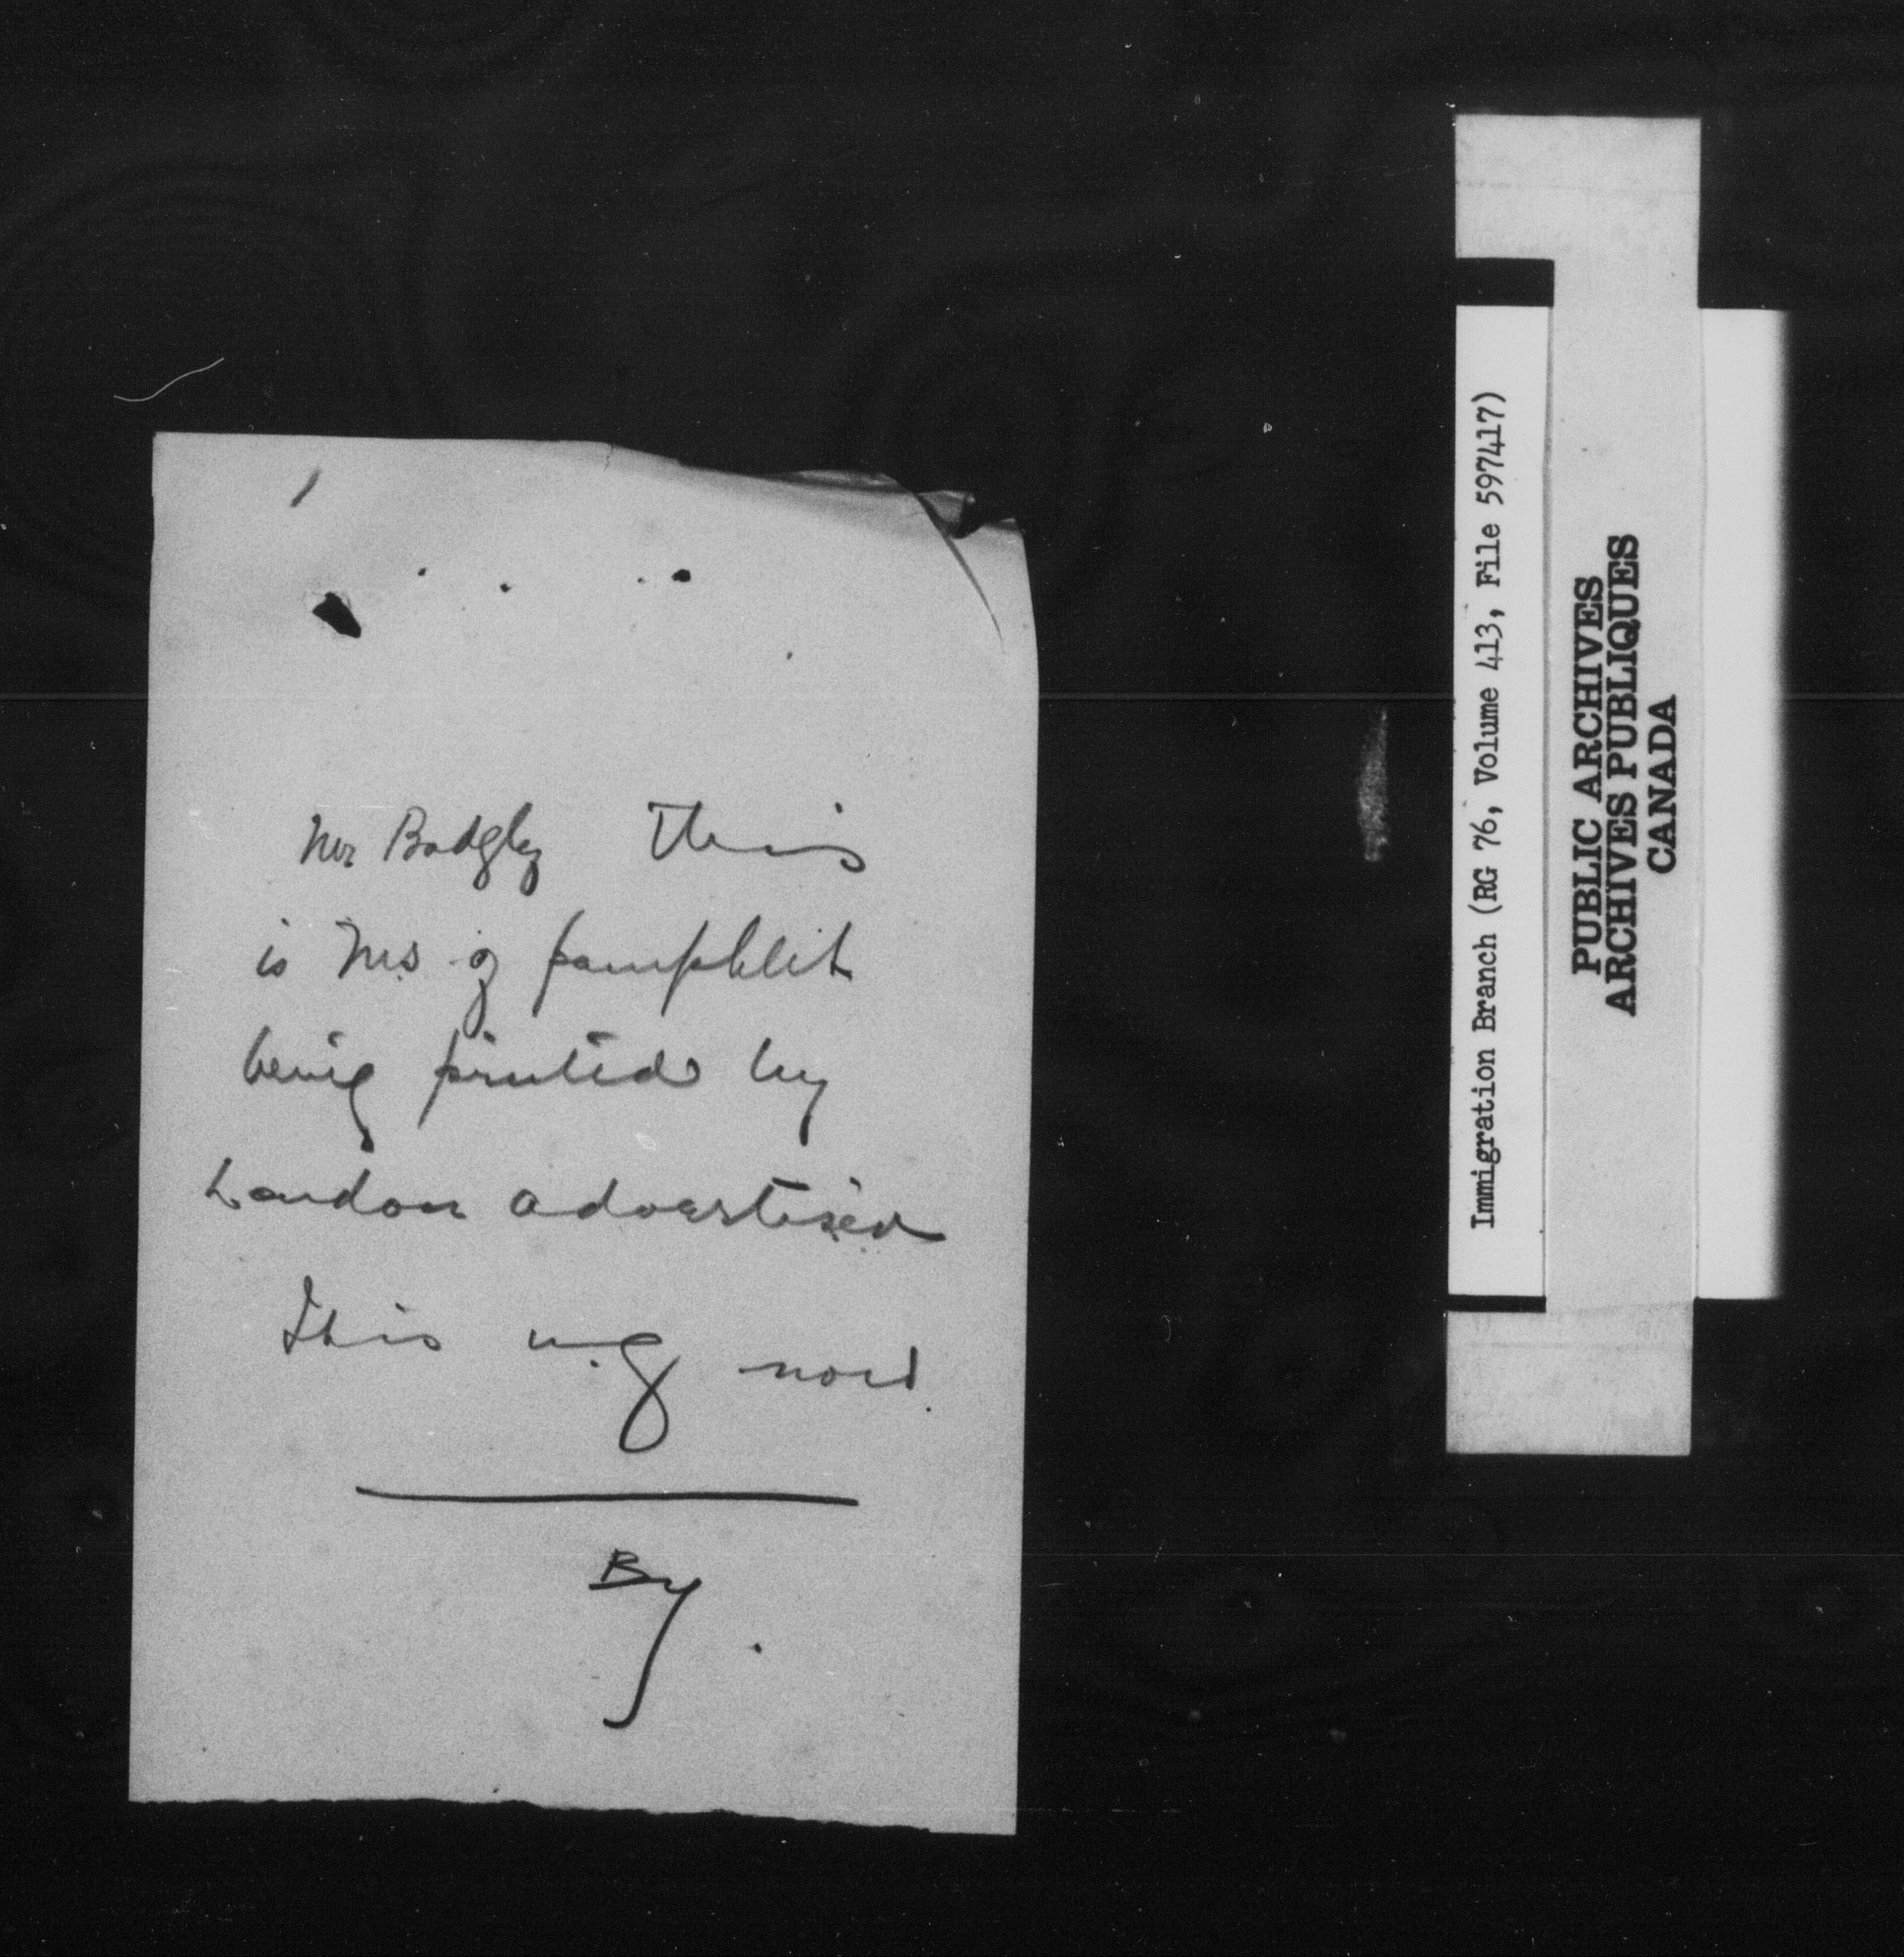 Mr Badgley This
is Ms of pamphlet
being printed by
London Advertiser
This now
By.
Immigration Branch (RG 76, Volume 413, File 597417)
PUBLIC ARCHIVES
ARCHIVES PUBLIQUES
CANADA